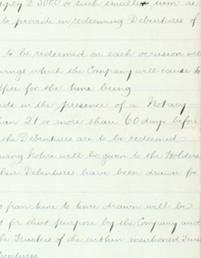 £3000 or such smaller sum as
to provide in redeeming Debentures of
to be redeemed on each occasion will
drawings which the Company will cause to
office for the time being
in the presence of a Notary
than 21 or more than 60 days before
the Debentures are to be redeemed
Notice will be given to the Holders
Debentures have been drawn for
from time to time drawn will be
for that purpose by the Company and
the Trustees of the within mentioned